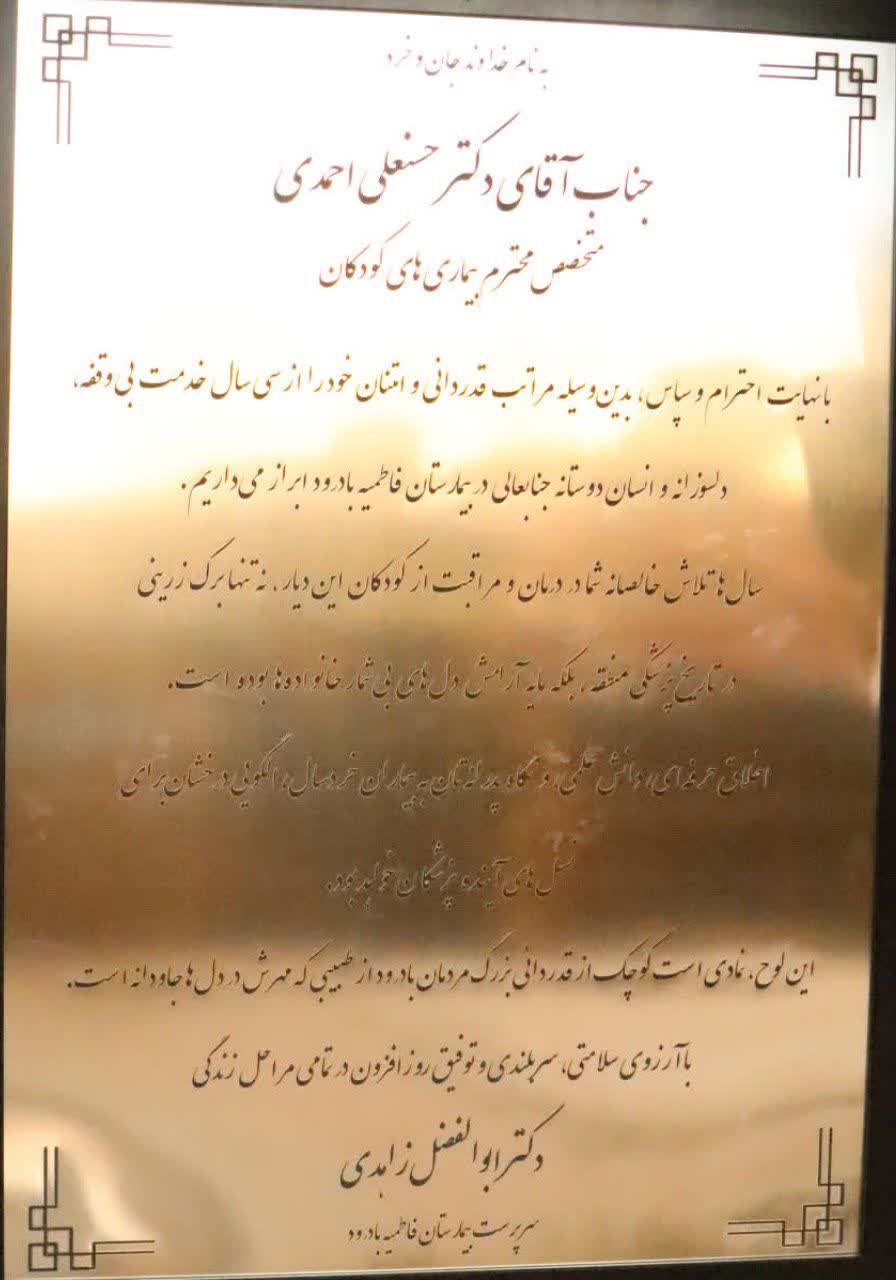 به نام خداوند جان و خرد
جناب آقای دکتر حسنعلی احمدی
متخصص محترم بیماری های کودکان
با نهایت احترام و سپاس، بدین وسیله مراتب قدردانی و امتنان خود را از سی سال خدمت بی وقفه،
دلسوزانه و انسان دوستانه جنابعالی در بیمارستان فاطمیه بادرود ابراز می داریم.
سال ها تلاش خالصانه شما در درمان و مراقبت از کودکان این دیار، نه تنها برگ زرینی
در تاریخ پزشکی منطقه، بلکه مایه آرامش دل های بی شمار خانواده ها بوده است.
اخلاق حرفه ای، دانش علمی، و نگاه پدرانه تان به بیماران خردسال، الگویی درخشان برای
نسل های آینده پزشکان خواهد بود.
این لوح، نمادی است کوچک از قدردانی بزرگ مردمان بادرود از طبیبی که مهرش در دل ها جاودانه است.
با آرزوی سلامتی، سربلندی و توفیق روز افزون در تمامی مراحل زندگی
دکتر ابوالفضل زاهدی
سرپرست بیمارستان فاطمیه بادرود